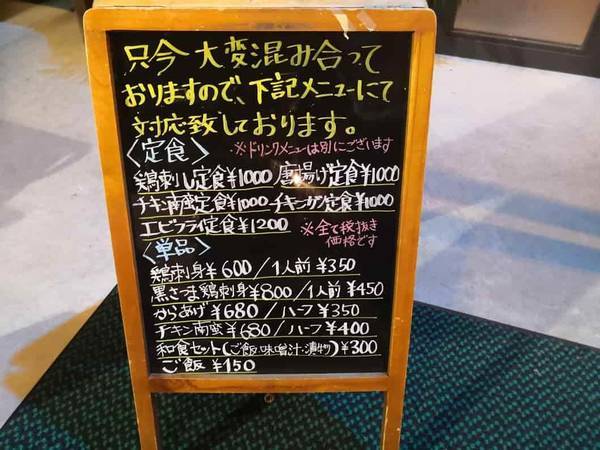 只今 大変混み合って
おりますので、下記メニューにて
対応致しております。
〈定食〉 ※ドリンクメニューは別にございます
鶏刺し定食¥1000/唐揚げ定食¥1000
チキン南蛮定食¥1000・チキンカツ定食¥1000
エビフライ定食¥1200 ※全て税抜き
価格です
〈単品〉
鶏刺身¥600/1人前¥350
黒さつま鶏刺身¥800/1人前¥450
からあげ¥680/ハーフ¥350
チキン南蛮¥680/ハーフ¥400
和食セット(ご飯・味噌汁・漬物)¥300
ご飯¥150